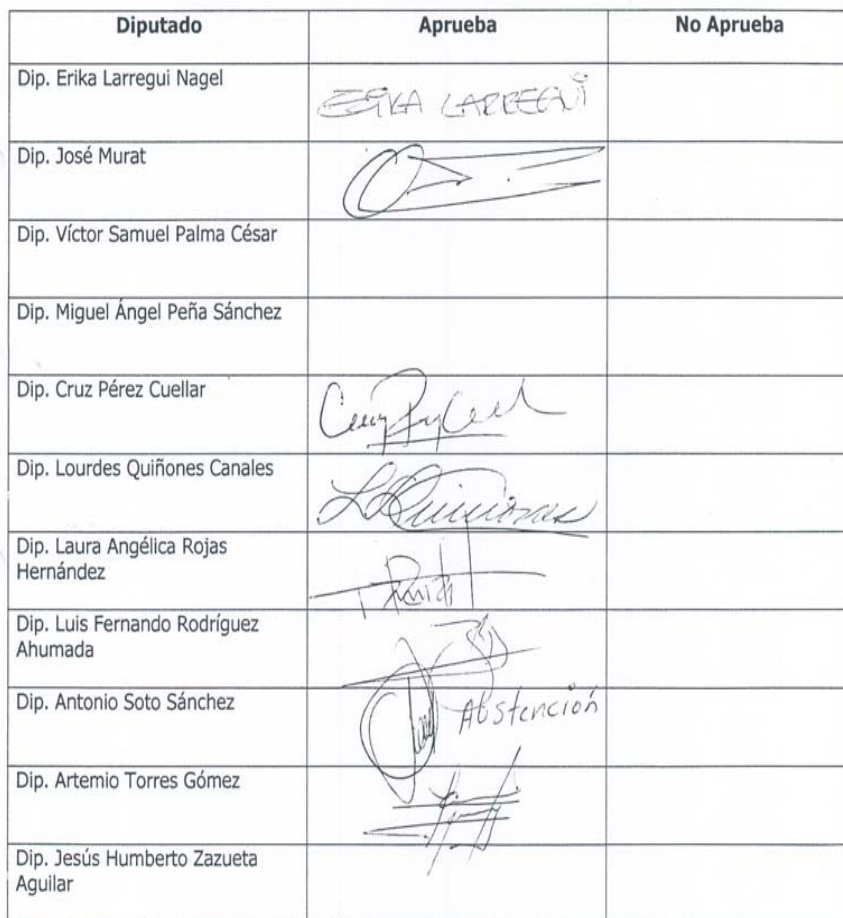 Diputado Aprueba No Aprueba
Dip. Erika Larregui Nagel
ERIKA LARREGUI
Dip. José Murat
Dip. Víctor Samuel Palma César
Dip. Miguel Ángel Peña Sánchez
Dip. Cruz Pérez Cuellar
Dip. Lourdes Quiñones Canales
LQuiñones
Dip. Laura Angélica Rojas
Hernández
Dip. Luis Fernando Rodríguez
Ahumada
Dip. Antonio Soto Sánchez
Abstención
Dip. Artemio Torres Gómez
Dip. Jesús Humberto Zazueta
Aguilar